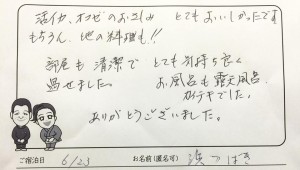 活イカ、オコゼのお造り とてもおいしかったです
もちろん、他の料理も!!
部屋も清潔で とても気持ち良く
過せました。
お風呂も露天風呂
ステキでした。
ありがとうございました。
ご宿泊日 6/23 お名前(匿名可)